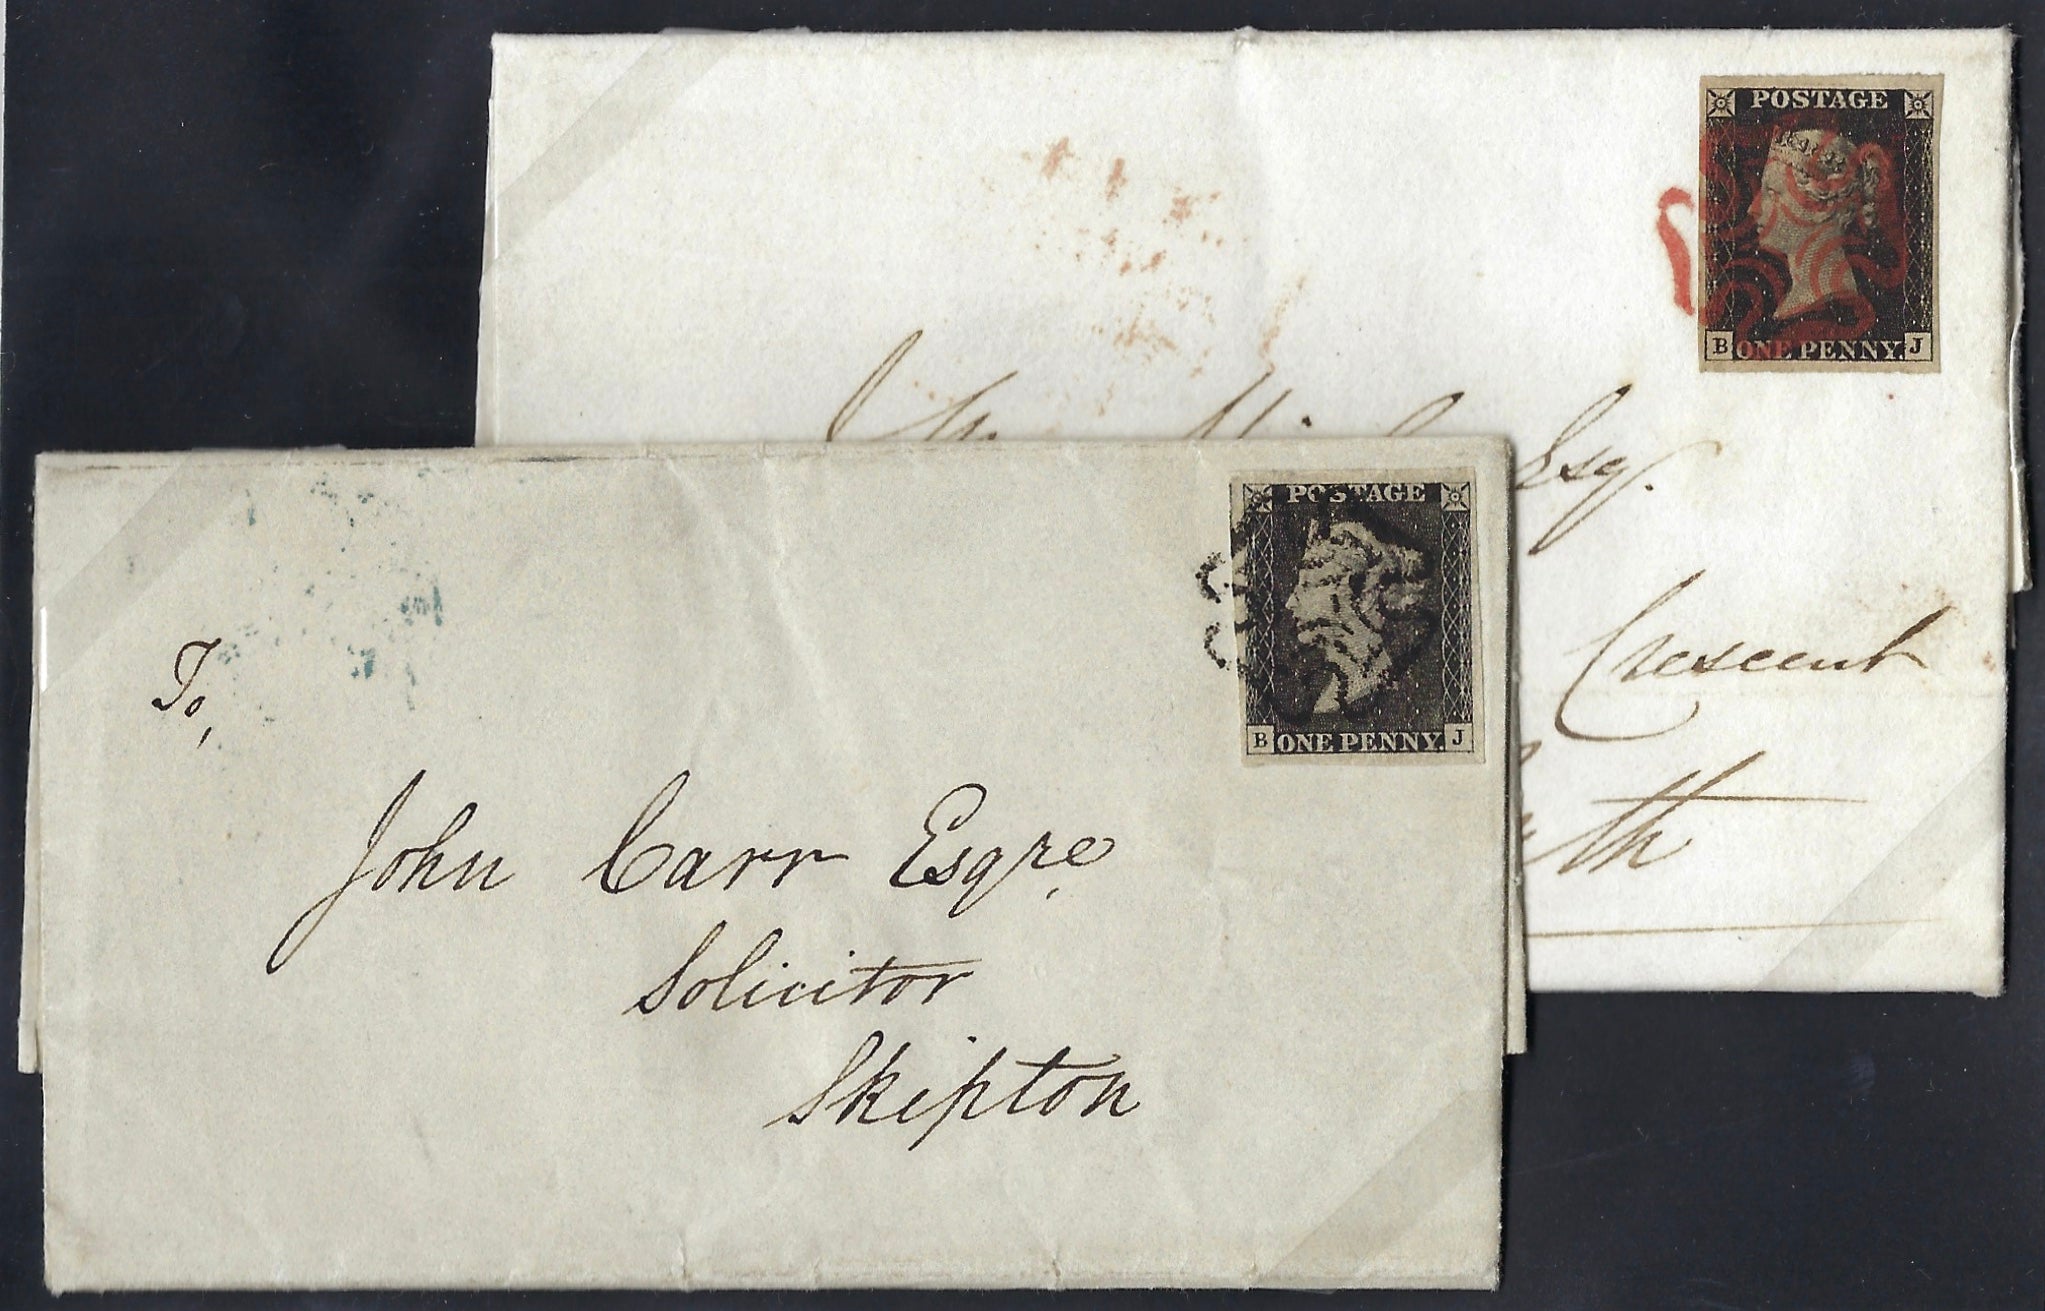 POSTAGE
B ONE PENNY. J
Esq.
Crescent
POSTAGE
B ONE PENNY. J
To,
John Carr Esqre,
Solicitor
Skipton